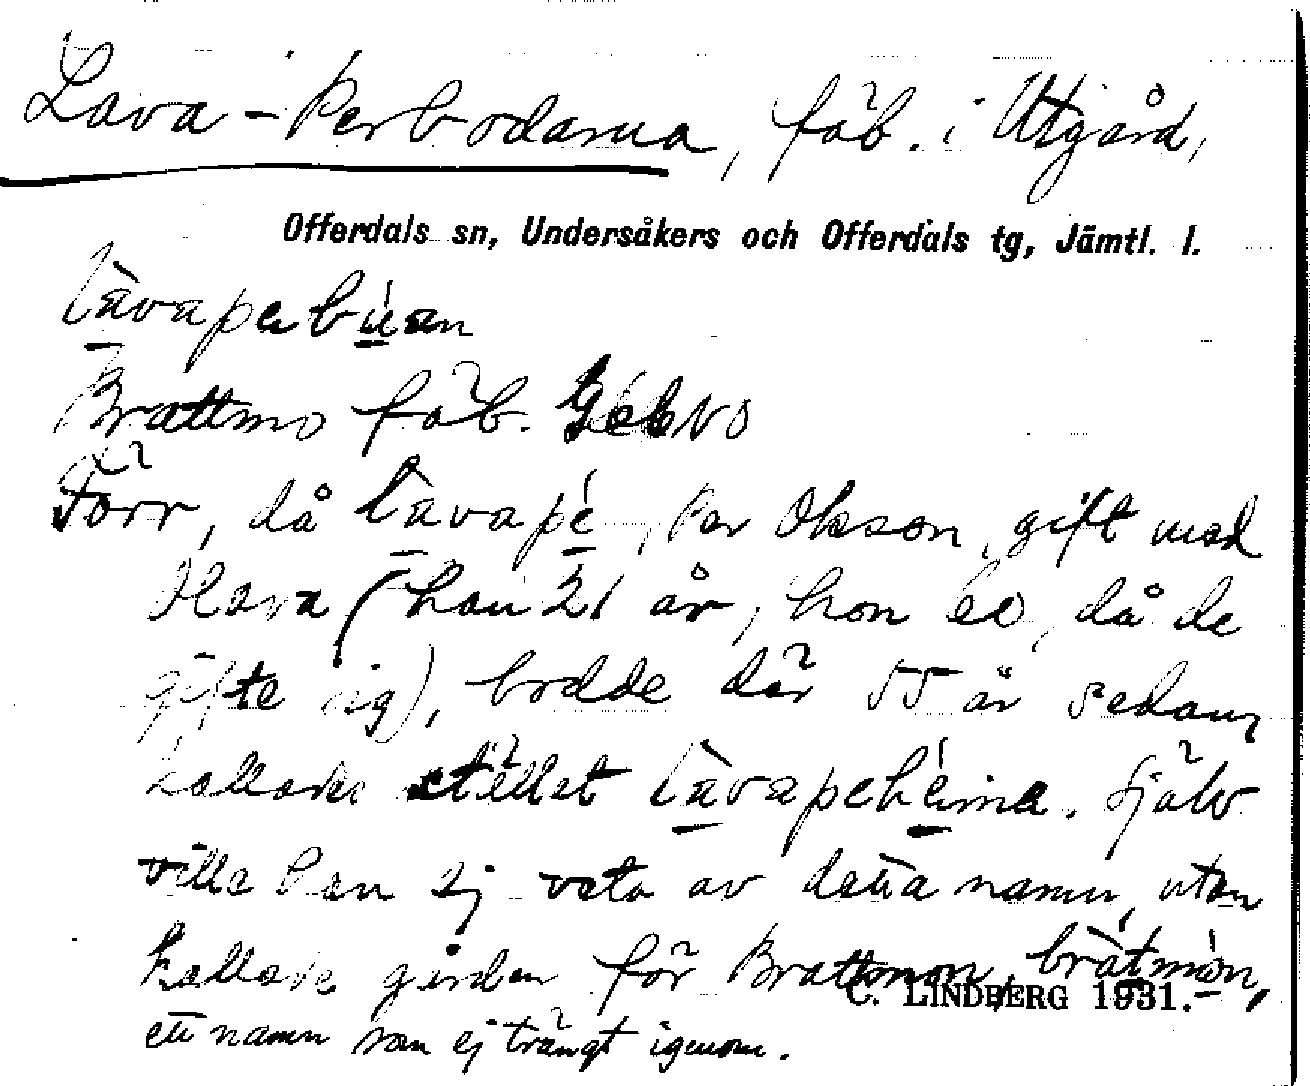 Lava-Perbodarna, fäb. i Utgård,
Offerdals sn, Undersåkers och Offerdals tg, Jämtl. l.
làvaperbúan
Brattmo fäb. GebVO
Förr, då làvapé, Per Olsson, gift med
Olava (han 21 år, hon 60, då de
gifte sig), bodde där 55 år sedan
kallade stället làvapehéime. Själv
ville han ej veta av detta namn, utan
kallade gården för Brattmon, bràtmón,
C. LINDBERG 1931.
ett namn som ej trängt igenom.